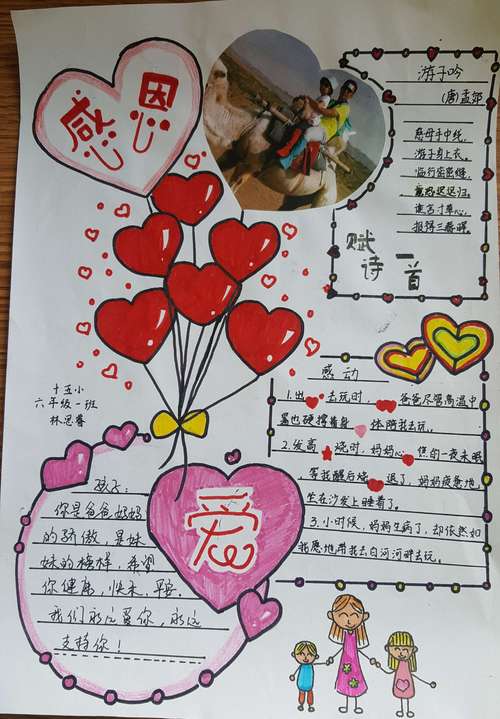 感恩
游子吟
(唐)孟郊
慈母手中线,
游子身上衣。
临行密密缝,
意恐迟迟归。
谁言寸草心,
报得三春晖。
赋诗一首
十五小
六年级一班
林思睿
感动
1.出去玩时,爸爸尽管高温中
暑也硬撑着身体陪我去玩。
2.发高烧时,妈妈心焦的一夜未眠
等我醒后烧退了,妈妈疲惫地
坐在沙发上睡着了。
3.小时候,妈妈生病了,却依然如
我愿地带我去白河河畔去玩。
孩子:
你是爸爸妈妈
的骄傲,是妹
妹的榜样,希望
你健康,快乐,平安,
我们永远爱你,永远
支持你!
爱